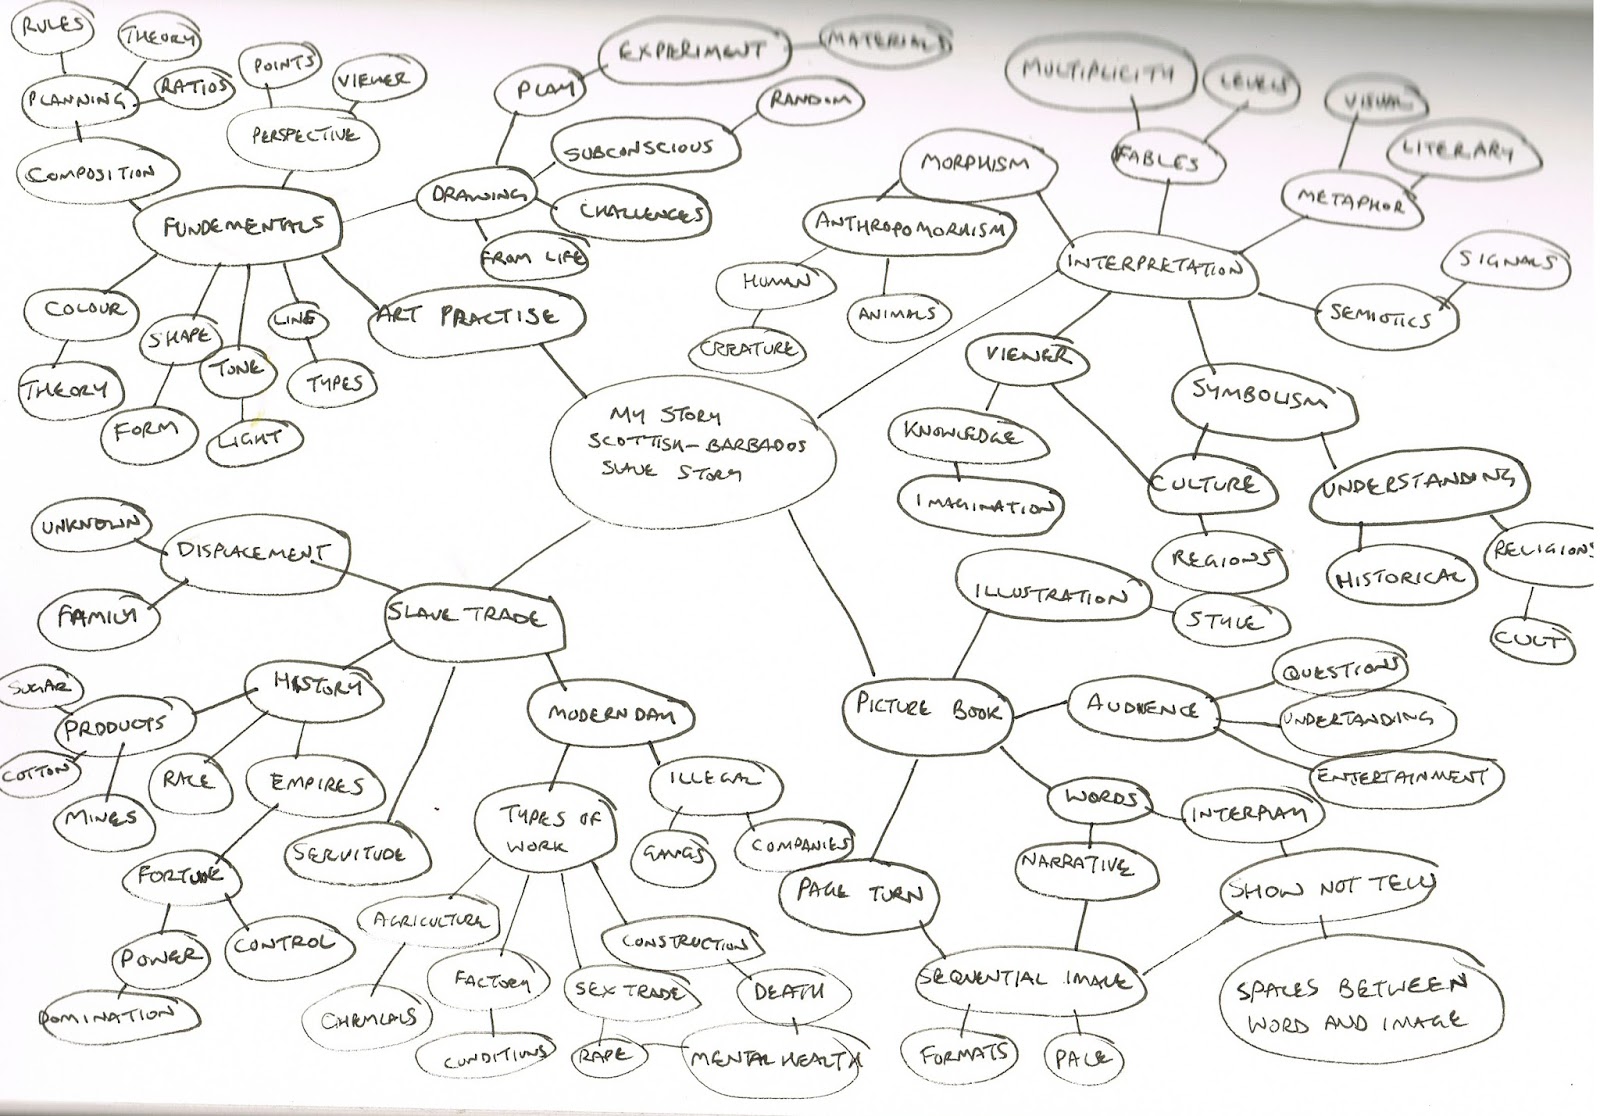 RULES
THEORY
PLANNING
RATIOS
COMPOSITION
POINTS
VIEWER
PERSPECTIVE
FUNDEMENTALS
COLOUR
THEORY
SHAPE
FORM
TONE
LIGHT
LINE
TYPES
DRAWING
PLAY
EXPERIMENT
MATERIALS
SUBCONSCIOUS
RANDOM
CHALLENGES
FROM LIFE
ART PRACTISE
MY STORY
SCOTTISH-BARBADOS
SLAVE STORY
INTERPRETATION
MORPHISM
ANTHROPOMORHISM
HUMAN
CREATURE
ANIMALS
FABLES
MULTIPLICITY
LEVELS
METAPHOR
VISUAL
LITERARY
SEMIOTICS
SIGNALS
VIEWER
KNOWLEDGE
IMAGINATION
SYMBOLISM
CULTURE
REGIONS
UNDERSTANDING
HISTORICAL
RELIGIONS
CULT
SLAVE TRADE
DISPLACEMENT
UNKNOWN
FAMILY
HISTORY
PRODUCTS
SUGAR
COTTON
MINES
RACE
EMPIRES
FORTUNE
POWER
DOMINATION
CONTROL
SERVITUDE
MODERN DAY
TYPES OF
WORK
ILLEGAL
GANGS
COMPANIES
AGRICULTURE
CHEMICALS
FACTORY
CONDITIONS
SEX TRADE
RAPE
CONSTRUCTION
DEATH
MENTAL HEALTH
PICTURE BOOK
ILLUSTRATION
STYLE
AUDIENCE
QUESTIONS
UNDERTANDING
ENTERTAINMENT
WORDS
INTERPLAY
NARRATIVE
SHOW NOT TELL
SPACES BETWEEN
WORD AND IMAGE
PAGE TURN
SEQUENTIAL IMAGE
FORMATS
PACE